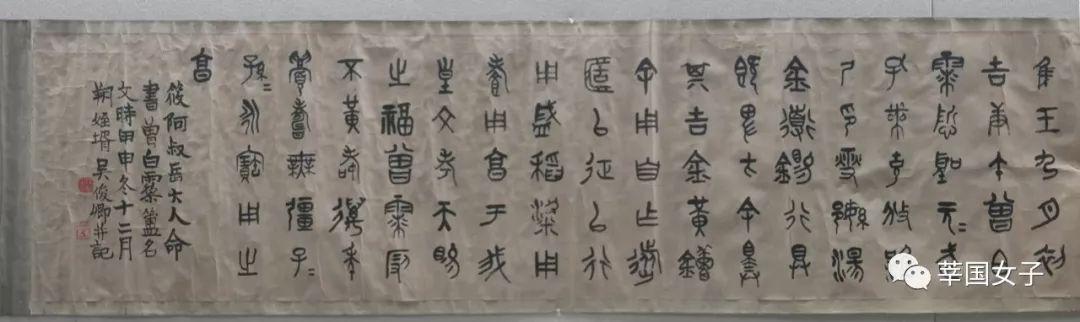 隹王九月初
吉庚午曾白
霥悊聖元=武
孔黹克狄淮
尸印燮繁湯
金道錫行具
既卑方余睪
其吉金黃鑪
余用自乍旅
匿以征以行
用盛稻粱用
孝用亯于我
皇文考天賜
之福曾霥叚
不黃耇萬年
眉壽無彊子=
孫=永寶用之
亯
筱阿叔岳大人命
書曾白霥簠名
文時甲申冬十二月
朔姪壻吳俊卿并記
莘国女子